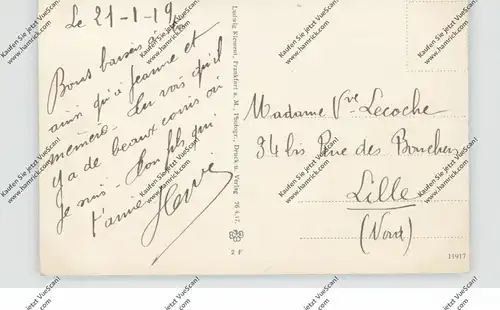 Le 21-1-19
Bons baisers à toi
ainsi qu'à Jeanne et
mémère. Tu vois qu'il
y a de beaux coins où
je suis. Ton fils qui
t'aime
Hervé
Ludwig Klement, Frankfurt a. M., Photogr. Druck u. Verlag 26 4.17.
2 F
Madame Vve Lecoche
94 bis Rue des Bouchers
Lille
(Nord)
11917
Kaufen Sie jetzt VueScan!
www.hamrick.com